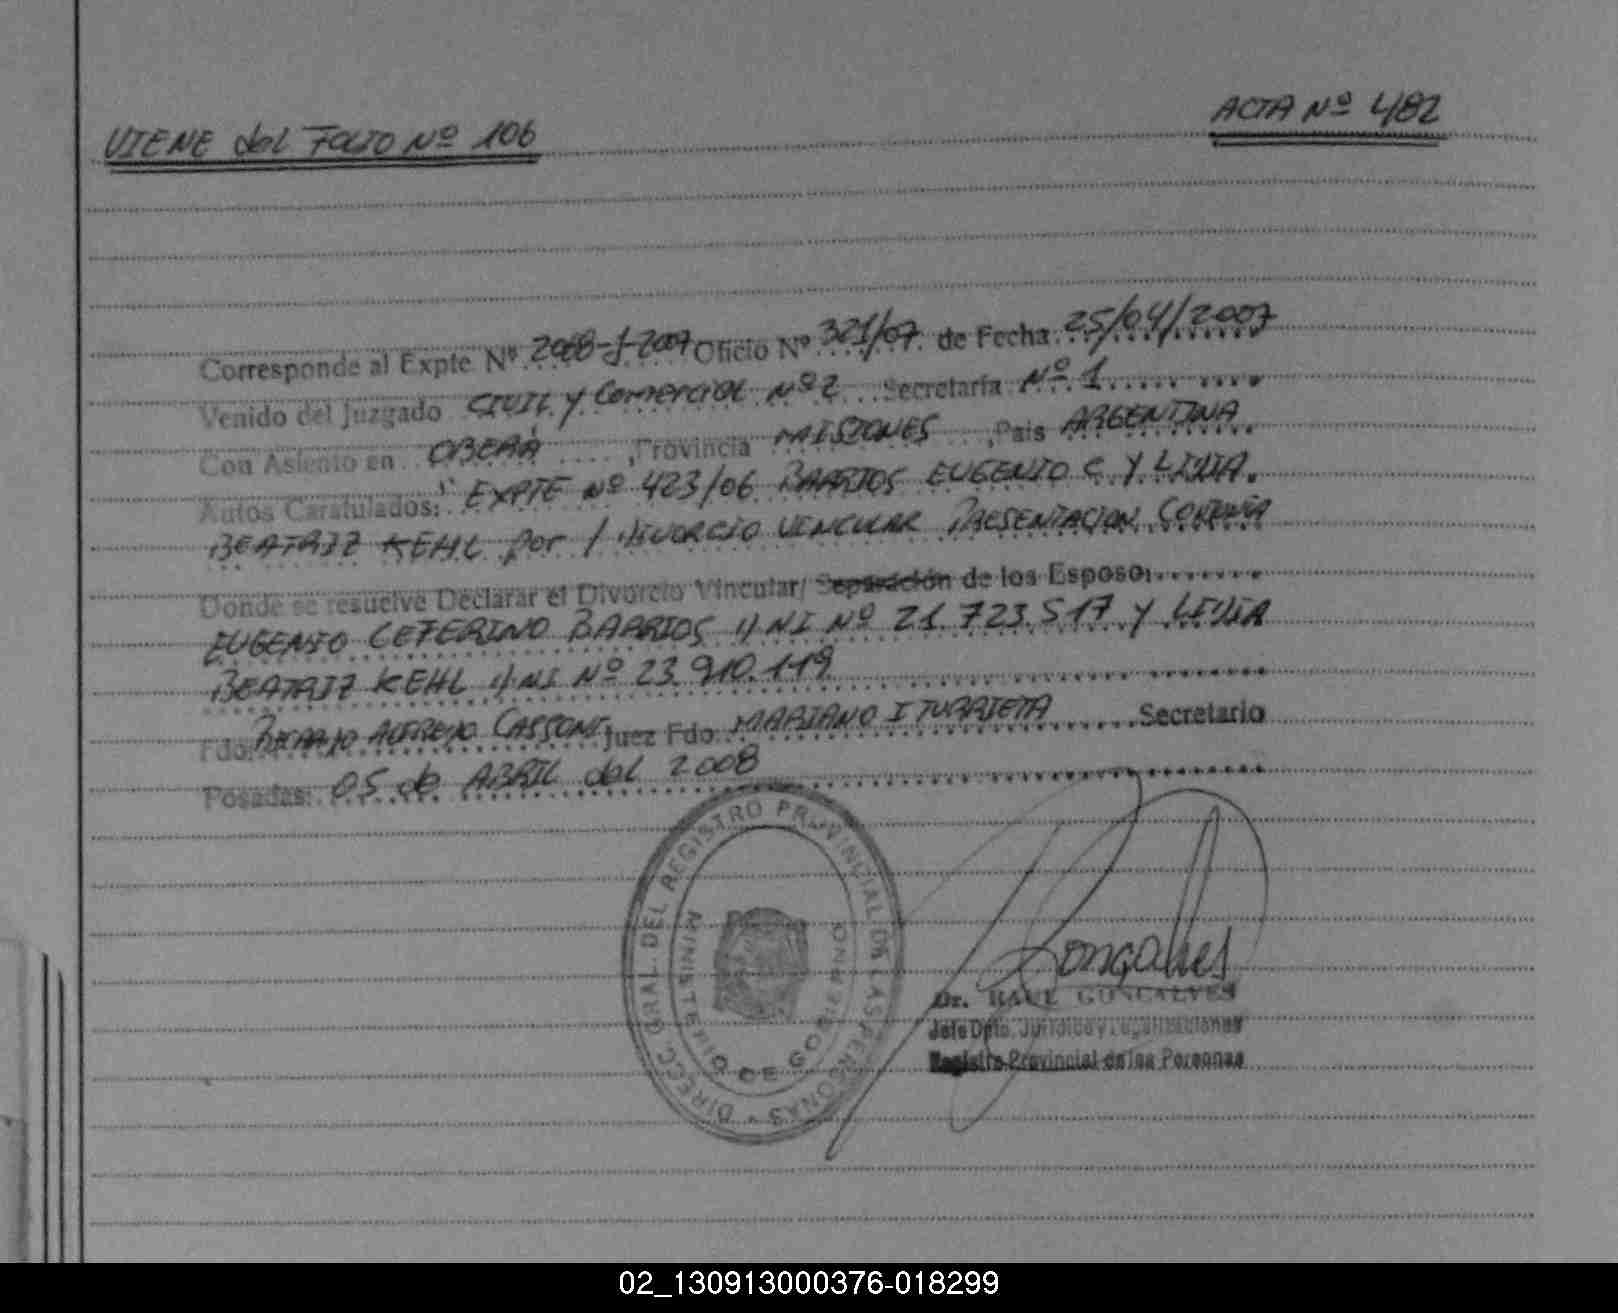 VIENE del FOLIO Nº 106
ACTA Nº 482
Corresponde al Expte Nº 2068-J-2007 Oficio Nº 321/07 de Fecha 25/04/2007
Venido del Juzgado CIVIL y Comercial Nº 2 Secretaría Nº 1
Con Asiento en OBERÁ, Provincia MISIONES, Pais ARGENTINA
Autos Caratulados: "EXPTE Nº 423/06 BARRIOS EUGENIO C Y LIDIA
BEATRIZ KEHL por / DIVORCIO VINCULAR PRESENTACION CONJUNTA
Donde se resuelve Declarar el Divorcio Vincular/ Separación de los Esposo:
EUGENIO CEFERINO BARRIOS DNI Nº 21.723.517 Y LIDIA
BEATRIZ KEHL DNI Nº 23.910.119
Fdo: RICARDO ALFREDO CASSONI Juez Fdo. MARIANO ITURRIETA Secretario
Posadas: 05 de ABRIL del 2008
DIRECC. GRAL. DEL REGISTRO PROVINCIAL DE LAS PERSONAS
MINISTERIO DE GOBIERNO
Goncalves
Dr. RAUL GONCALVES
Jefe Dpto. Jurídico y Legalizaciones
Registro Provincial de las Personas
02_130913000376-018299